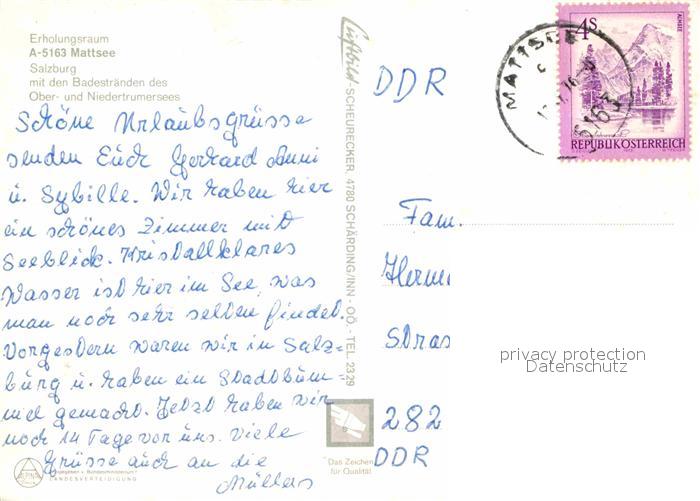 Erholungsraum
A-5163 Mattsee
Salzburg
mit den Badestränden des
Ober- und Niedertrumersees
Schöne Urlaubsgrüsse
senden Euch Gerhard Anni
u. Sybille. Wir haben hier
ein schönes Zimmer mit
Seeblick. Kristallklares
Wasser ist hier im See, was
man noch sehr selten findet.
Vorgestern waren wir in Salz-
burg u. haben ein Stadtbum-
mel gemacht. Jetzt haben wir
noch 14 Tage vor uns. Viele
Grüsse auch an die
Müllers
LANDESVERTEIDIGUNG
Luftbild-SCHEURECKER, 4780 SCHÄRDING/INN - OÖ. - TEL. 23 29
Das Zeichen
für Qualität
DDR
MATTSEE
5163
4s
ALMSEE
REPUBLIK ÖSTERREICH
Fam.
Stras
282
DDR
privacy protection
Datenschutz